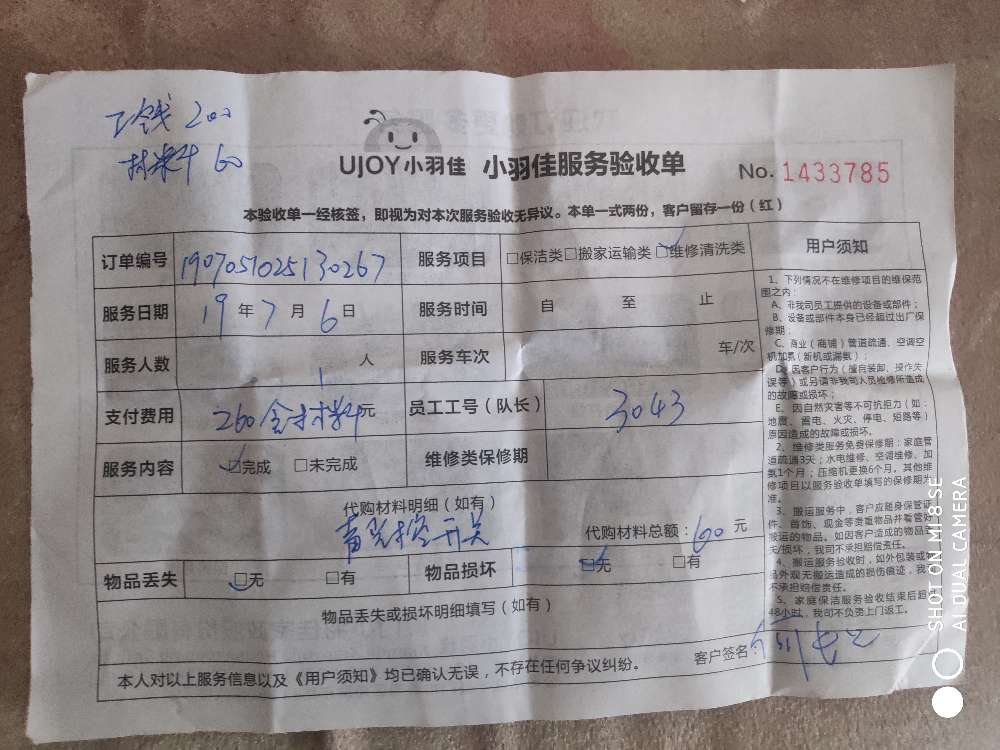 工钱 200
材料 60
UJOY小羽佳 小羽佳服务验收单
No. 1433785
本验收单一经核签，即视为对本次服务验收无异议。本单一式两份，客户留存一份（红）
订单编号 190705102513 0267
服务项目 □保洁类□搬家运输类☑维修清洗类
服务日期 19年7月6日
服务时间 自 至 止
服务人数 1 人
服务车次 车/次
支付费用 260含材料元
员工工号（队长） 3043
服务内容 ☑完成 □未完成
维修类保修期
代购材料明细（如有）
开关
代购材料总额：60元
物品丢失 ☑无 □有
物品损坏 ☑无 □有
物品丢失或损坏明细填写（如有）
本人对以上服务信息以及《用户须知》均已确认无误，不存在任何争议纠纷。
客户签名：
用户须知
1、下列情况不在维修项目的维保范
围之内：
A、非我司员工提供的设备或部件；
B、设备或部件本身已经超过出厂保
修期；
C、商业（商铺）管道疏通、空调空
机加氟（新机或漏氟）；
D、因客户行为（擅自装卸、操作失
误等）或另请非我司人员检修所造成
的故障或损坏；
E、因自然灾害等不可抗拒力（如：
地震、雷电、火灾、停电、短路等）
原因造成的故障或损坏。
2、维修类服务免费保修期：家庭管
道疏通3天；水电维修、空调维修、加
氟1个月；压缩机更换6个月。其他维
修项目以服务验收单填写的保修期为
准。
3、搬运服务中，客户应随身保管证
件、首饰、现金等贵重物品并看管好
搬运的物品。如因客户造成的物品丢
失/损坏，我司不承担赔偿责任。
4、搬运服务验收时，如外包装或物
品外观无搬运造成的损伤痕迹，我司
不承担赔偿责任。
5、家庭保洁服务验收结束后超过
48小时，我司不负责上门返工。
SHOT ON MI 8 SE
AI DUAL CAMERA